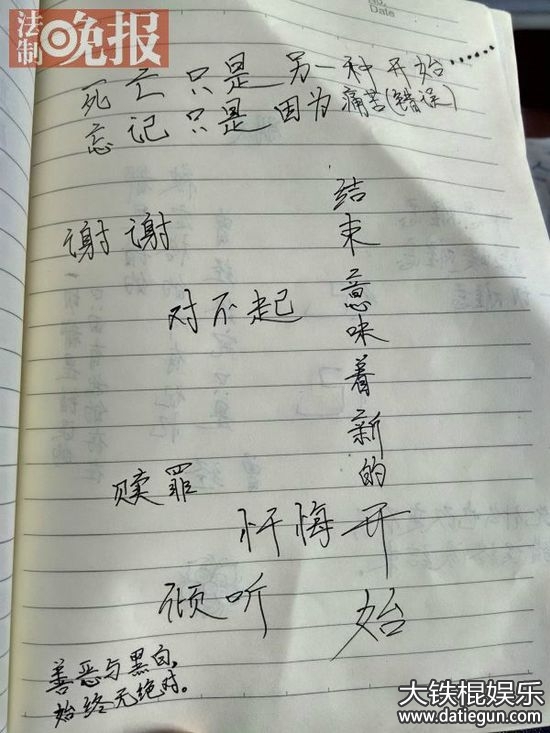 法制晚报
Date
死亡只是另一种开始……
忘记只是因为痛苦(错误)
谢谢
对不起
结束意味着新的开始
赎罪
忏悔
倾听
善恶与黑白,
始终无绝对。
大铁棍娱乐
www.datiegun.com